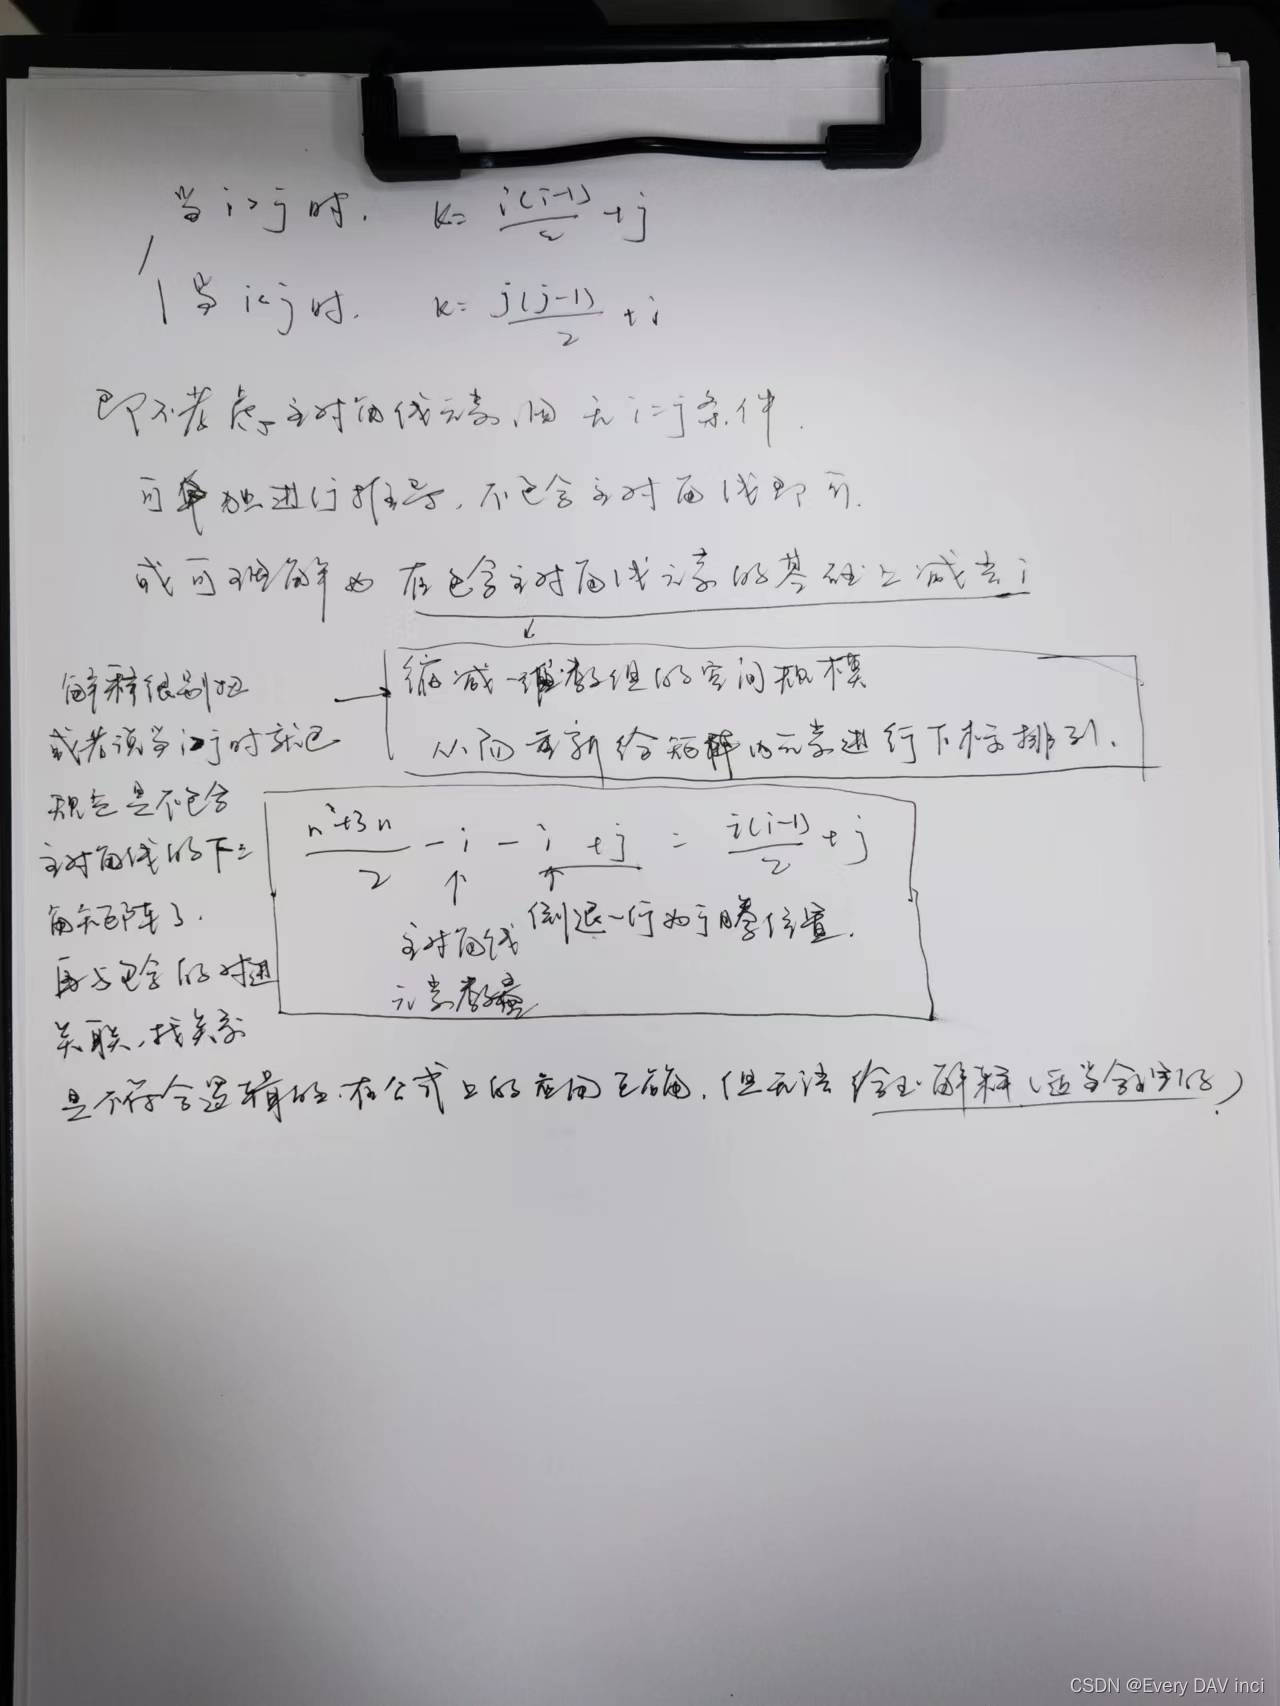 当i>j时. k= i(i-1)/2 +j
当i<j时. k= j(j-1)/2 +i
即不考虑主对角线元素,因无i=j条件.
可单独进行推导,不包含主对角线即可.
或可理解为在包含主对角线元素的基础上减去i
缩减一维数组的空间规模
从而重新给矩阵内元素进行下标排列.
解释很别扭
或者说当i>j时就已
规定是不包含
主对角线的下三
角矩阵了.
再与包含的对进
关联,找关系
(n²+3n)/2 -i -i +j = i(i-1)/2 +j
↑ ↑
主对角线
元素数量
倒退一行为j腾位置.
是不符合逻辑的.在公式上的应用正确,但无法给出解释(适当合理的)
CSDN @Every DAV inci